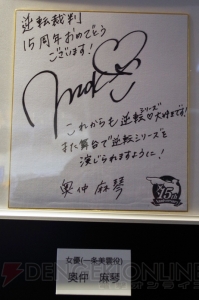 逆転裁判
15周年おめでとう
ございます！
これからも逆転シリーズ大好きです！
また舞台で逆転シリーズを
演じられますように！
奥仲 麻琴
15th
女優(一条美雲役)
奥仲 麻琴
DENGEKIONLINE